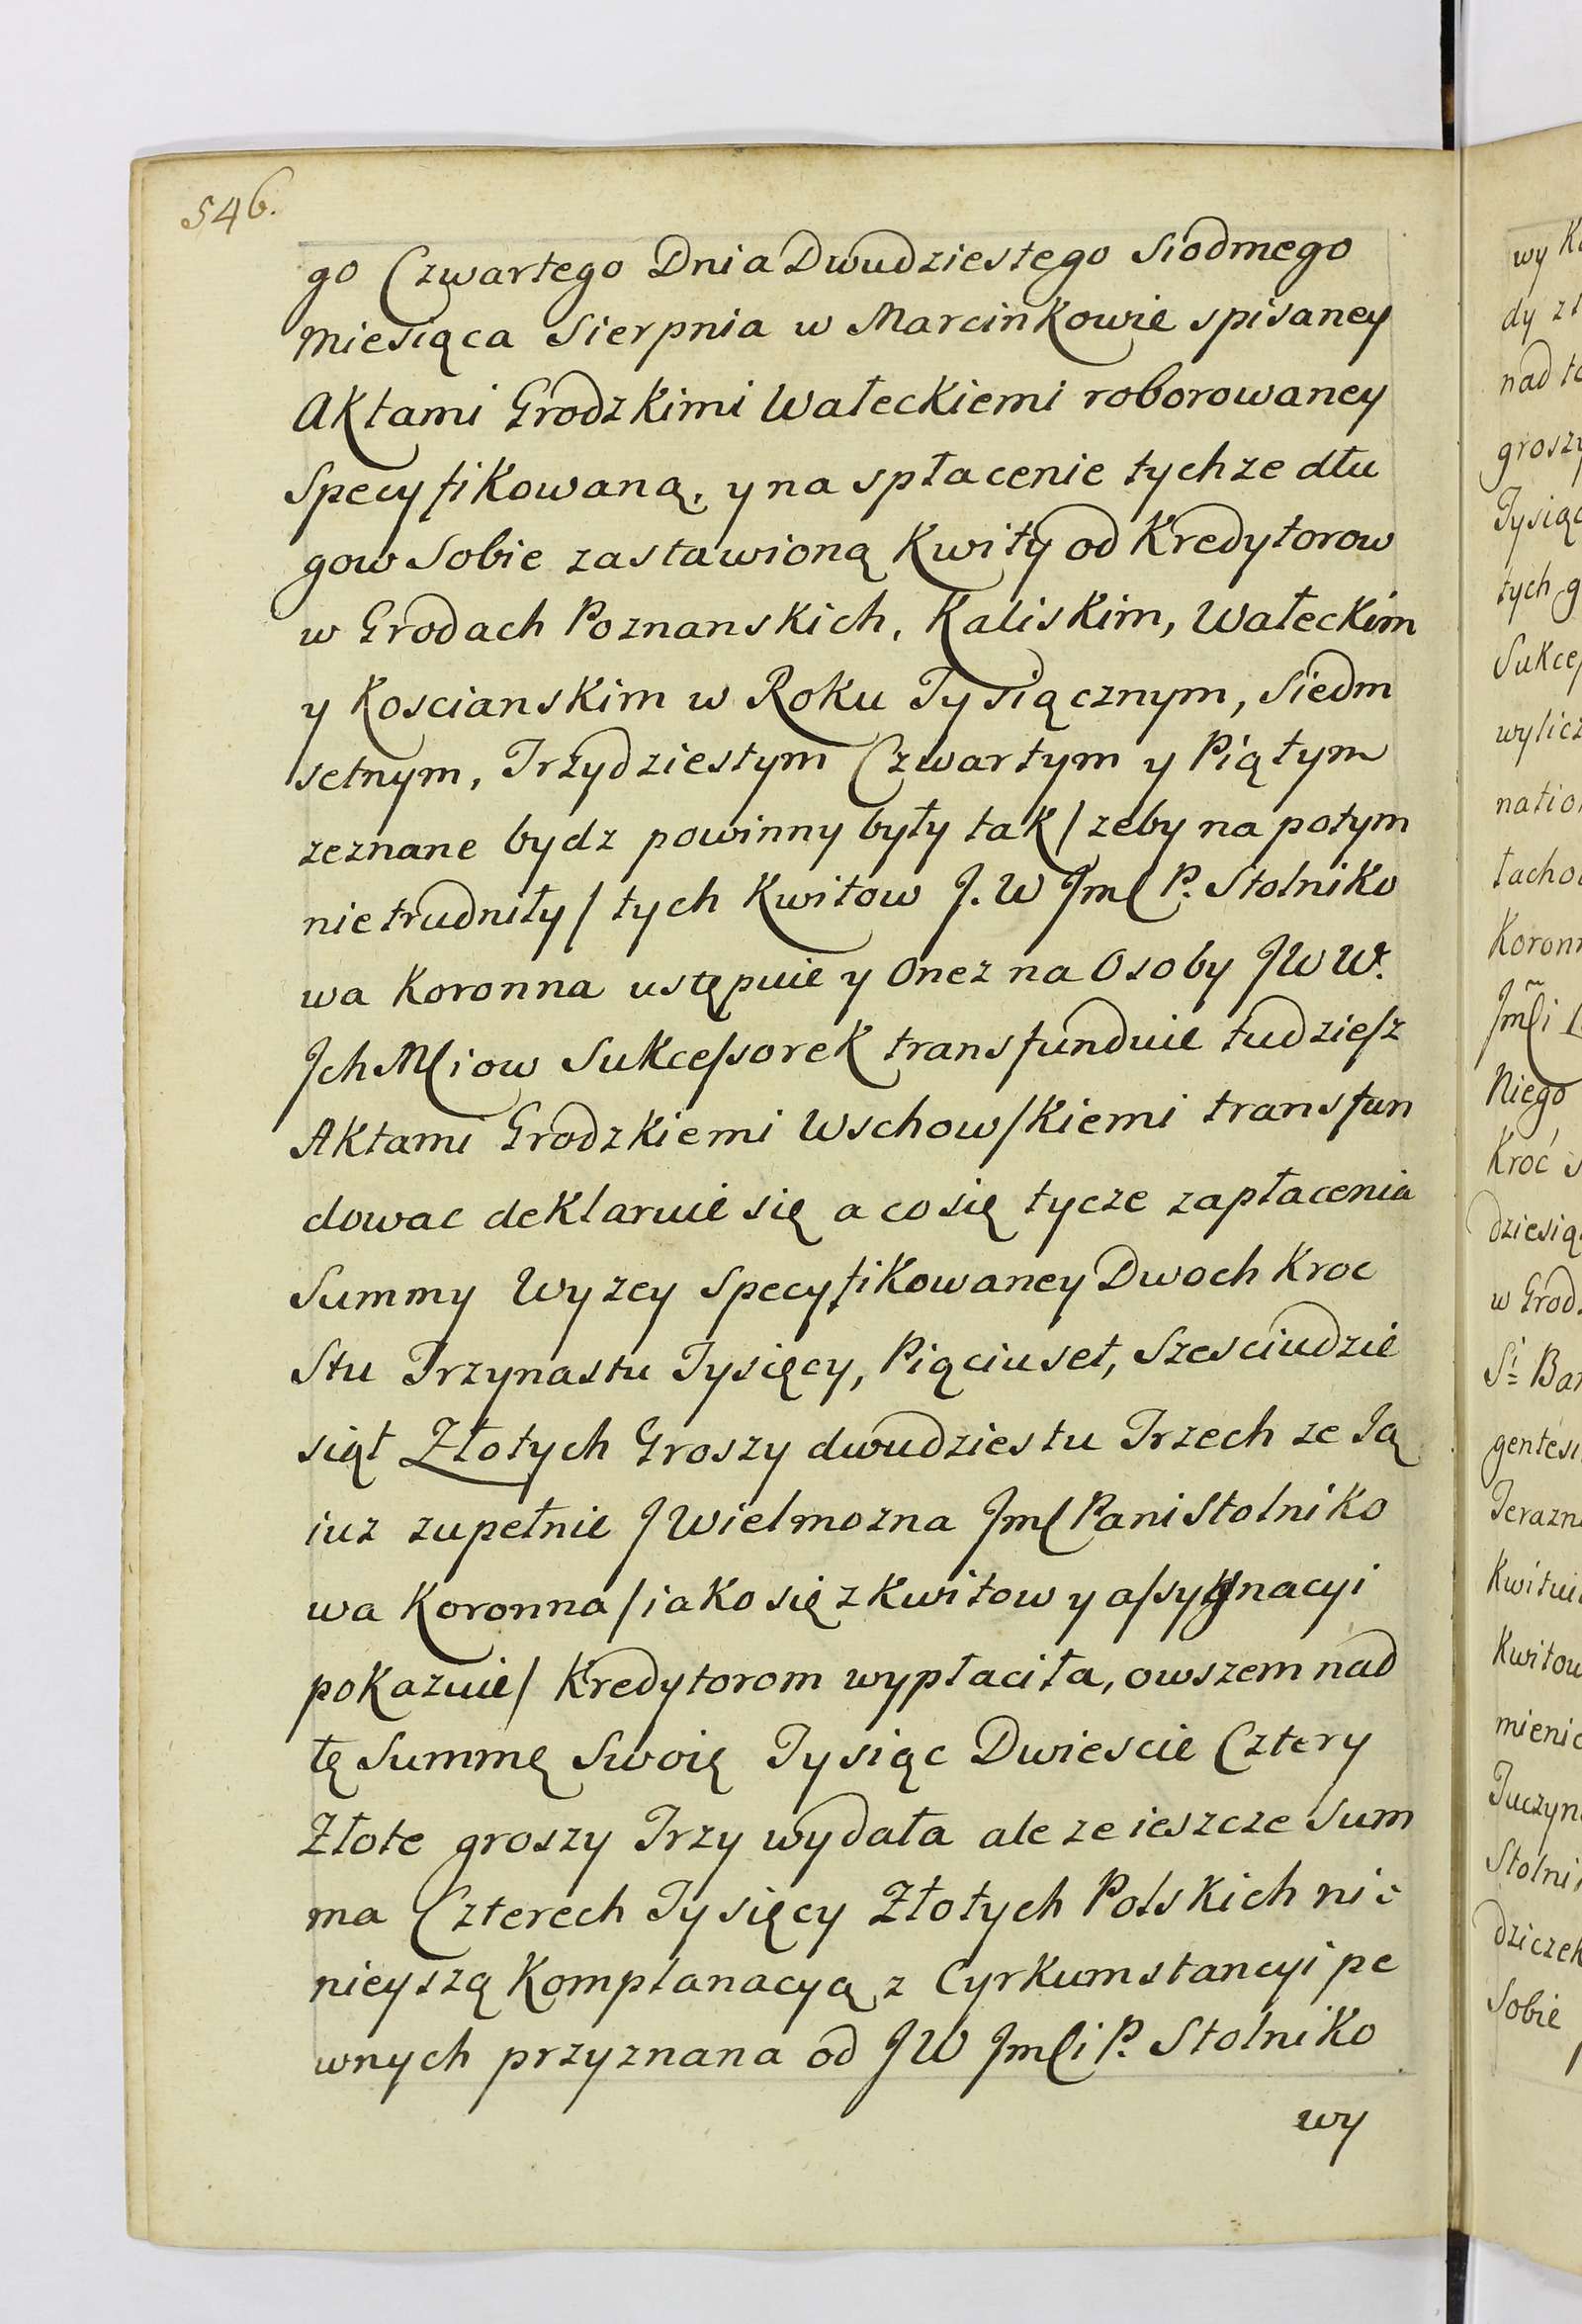 546.
go Czwartego Dnia Dwudziestego Siodmego
Miesiąca Sierpnia w Marcinkowie spisaney
Aktami Grodzkimi Wałeckiemi roborowaney
Specyfikowaną, y na spłacenie tychze dłu
gow Sobie zastawioną Kwity od Kredytorow
w Grodach Poznanskich, Kaliskim, Wałeckim
y Koscianskim w Roku Tysiącznym, Siedm
setnym, Trzydziestym Czwartym y Piątym
zeznane bydz powinny były tak / zeby na potym
nie trudniły / tych Kwitow J. W Jmſ P. Stolniko
wa Koronna ustępuie y Onez na Osoby JWW.
Jch Mſciow Sukceſsorek transfunduie tudzieſz
Aktami Grodzkiemi Wschowſkiemi transfun
dowac deklaruie się a co się tycze zapłacenia
Summy Wyzey Specyfikowaney Dwoch Kroc
Stu Trzynastu Tysięcy, Piąciuset, Szesciudzie
siąt Złotych Groszy dwudziestu Trzech ze Ją
iuz zupełnie JWielmozna Jmſ Pani Stolniko
wa Koronna / iako się z Kwitow y aſsygnacyi
pokazuie / Kredytorom wypłaciła, owszem nad
tę Summę Swoię Tysiąc Dwiescie Cztery
Złote groszy Trzy wydała ale ze ieszcze Sum
ma Czterech Tysięcy Złotych Polskich ni=
nieyszą Komplanacyą z Cyrkumstancyi pe
wnych przyznana od JW Jmſi P. Stolniko
wy
wy
dy
nad
groszy
tych
Koron
Niego
Kroć
w Grod
Kwitow
Sobie